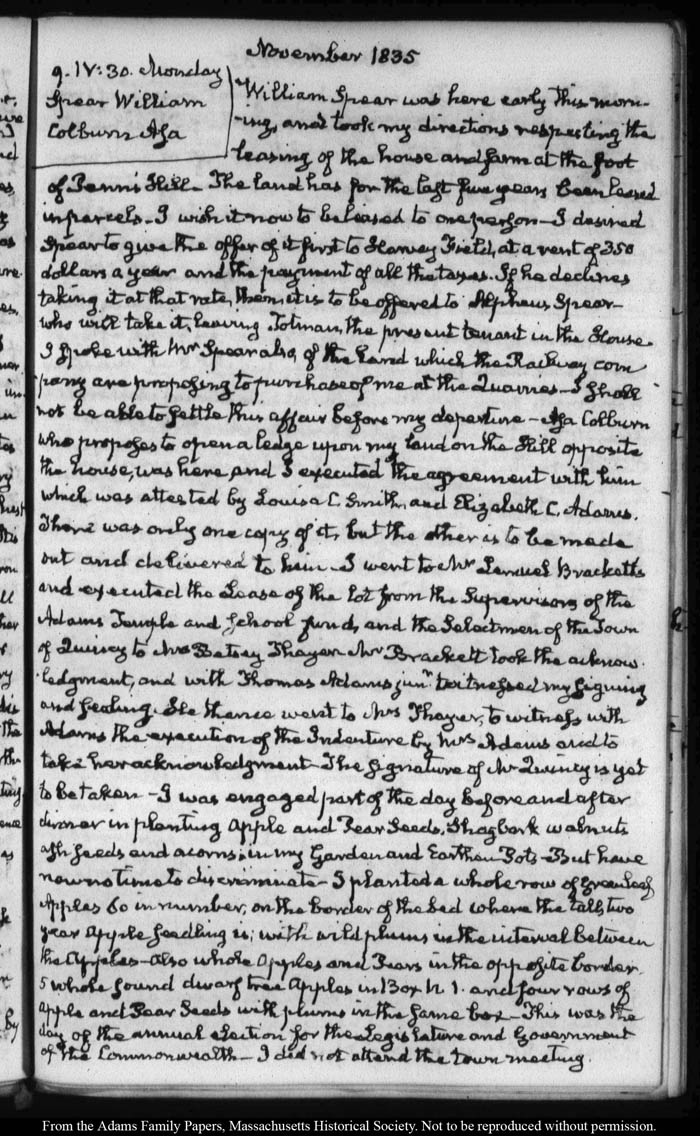 November 1835
9. IV:30. Monday
Spear William
Colburn Asa
William Spear was here early this morn-
-ing, and took my directions respecting the
leasing of the house and farm at the foot
of Penn's Hill. The land has for the last five years been leased
in parcels. I wish it now to be leased to one person. I desired
Spear to give the offer of it first to Harvey Field, at a rent of 350
dollars a year and the payment of all the taxes. If he declines
taking it at that rate, then it is to be offered to Alpheus Spear
who will take it, leaving Tolman, the present tenant in the House.
I spoke with Mr Spear also, of the Land which the Railway com
pany are proposing to purchase of me at the Quarries. I shall
not be able to settle this affair before my departure - Asa Colburn
who proposes to open a ledge upon my land on the Hill opposite
the house, was here, and I executed the agreement with him
which was attested by Louisa C. Smith, and Elizabeth C. Adams.
There was only one copy of it, but the other is to be made
out and delivered to him. I went to Mr Lemuel Bracketts
and executed the Lease of the lot from the Supervisors of the
Adams Temple and School fund, and the Selectmen of the Town
of Quincy to Mrs Betsey Thayer. Mr Brackett took the acknow-
ledgment, and with Thomas Adams junr witnessed my signing
and sealing. He thence went to Mrs Thayer, to witness with
Adams the execution of the Indenture by Mrs Adams and to
take her acknowledgment. The signature of Mr Quincy is yet
to be taken - I was engaged part of the day before and after
dinner in planting Apple and Pear Seeds, Shagbark walnuts
ash seeds and acorns; in my Garden and Earthen Pots - But have
now no time to discriminate - I planted a whole row of Greenleaf
Apples 60 in number, on the border of the bed where the tall, two
year apple seedling is; with wild plums in the interval between
the Apples - Also whole Apples and Pears in the opposite border.
5 whole sound dwarf tree Apples in Box N 1. and four rows of
Apple and Pear Seeds with plums in the same box - This was the
day of the annual election for the Legislature and Government
of the Commonwealth - I did not attend the town meeting.
From the Adams Family Papers, Massachusetts Historical Society. Not to be reproduced without permission.